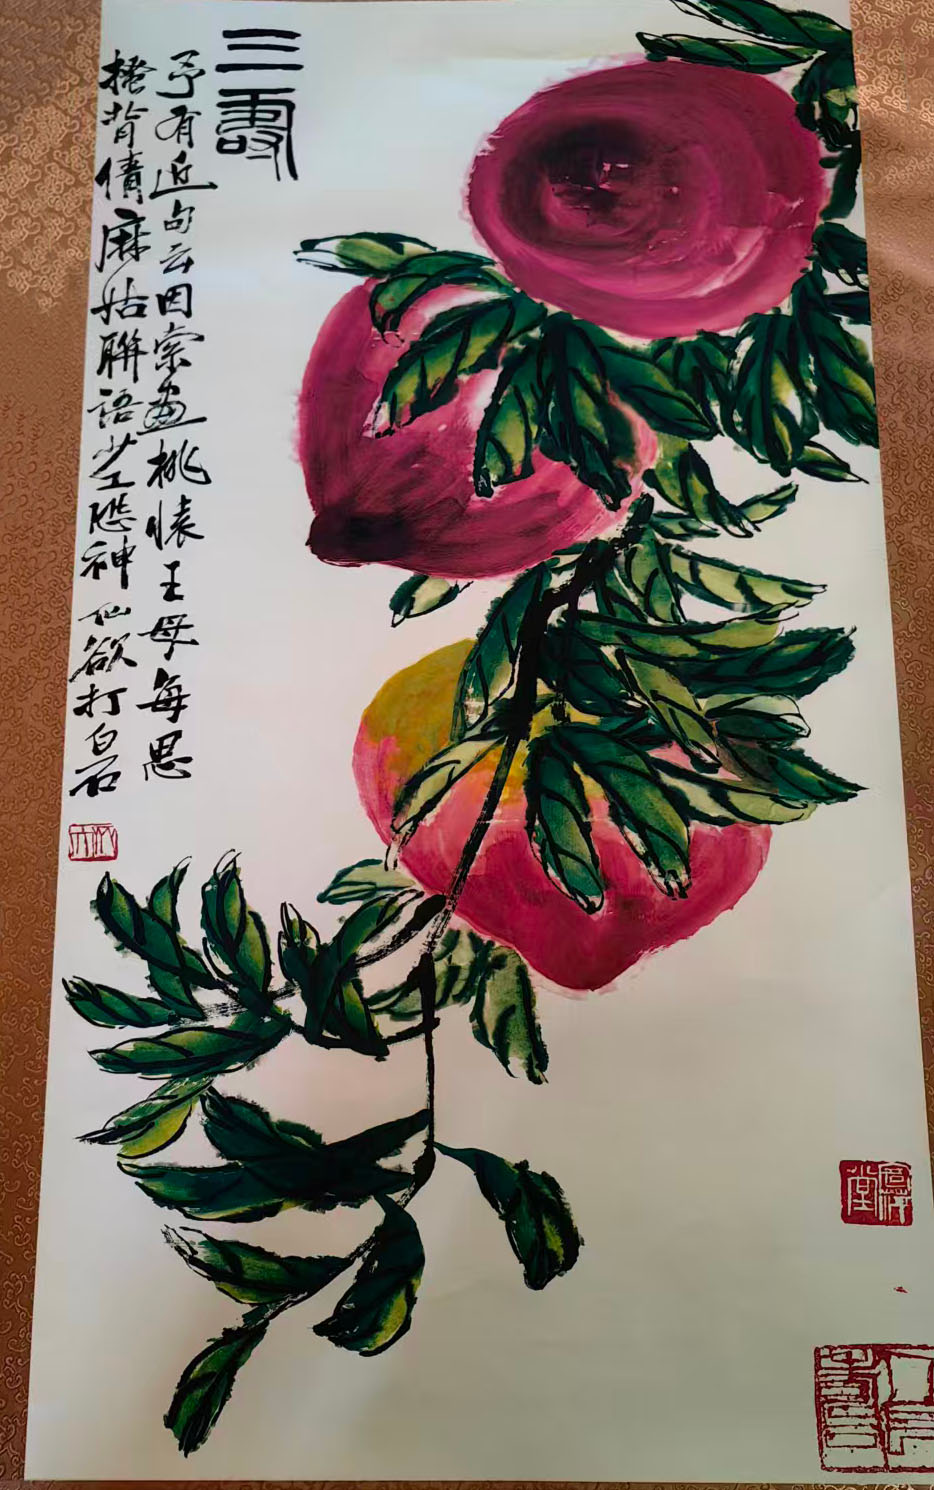 三壽
予有近句云因索畫桃懷王母每思
搔背倩麻姑聯語少工愁神仙欲打白石